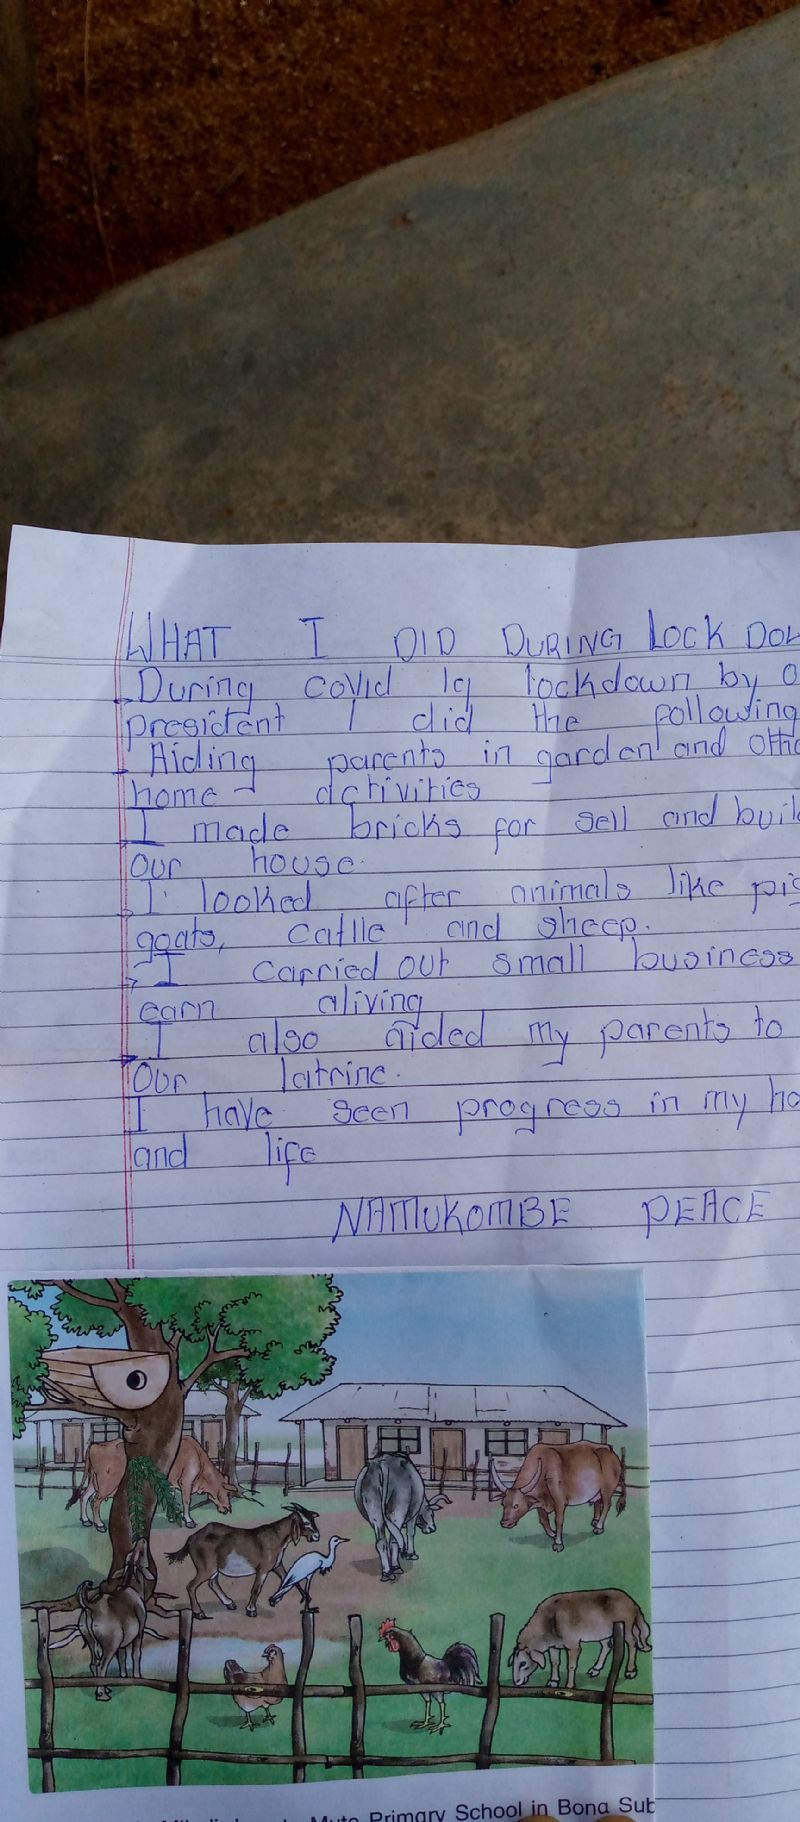 WHAT I DID DURING LOCK DOW
During covid 19 lockdown by o
president I did the following
Aiding parents in garden and othe
home activities
I made bricks for sell and buil
our house.
I looked after animals like pig
goats, catlle and sheep.
I carried out small business
earn aliving
I also aided my parents to
Our latrine.
I have seen progress in my ho
and life
NAMUKOMBE PEACE
Primary School in Bona Sub